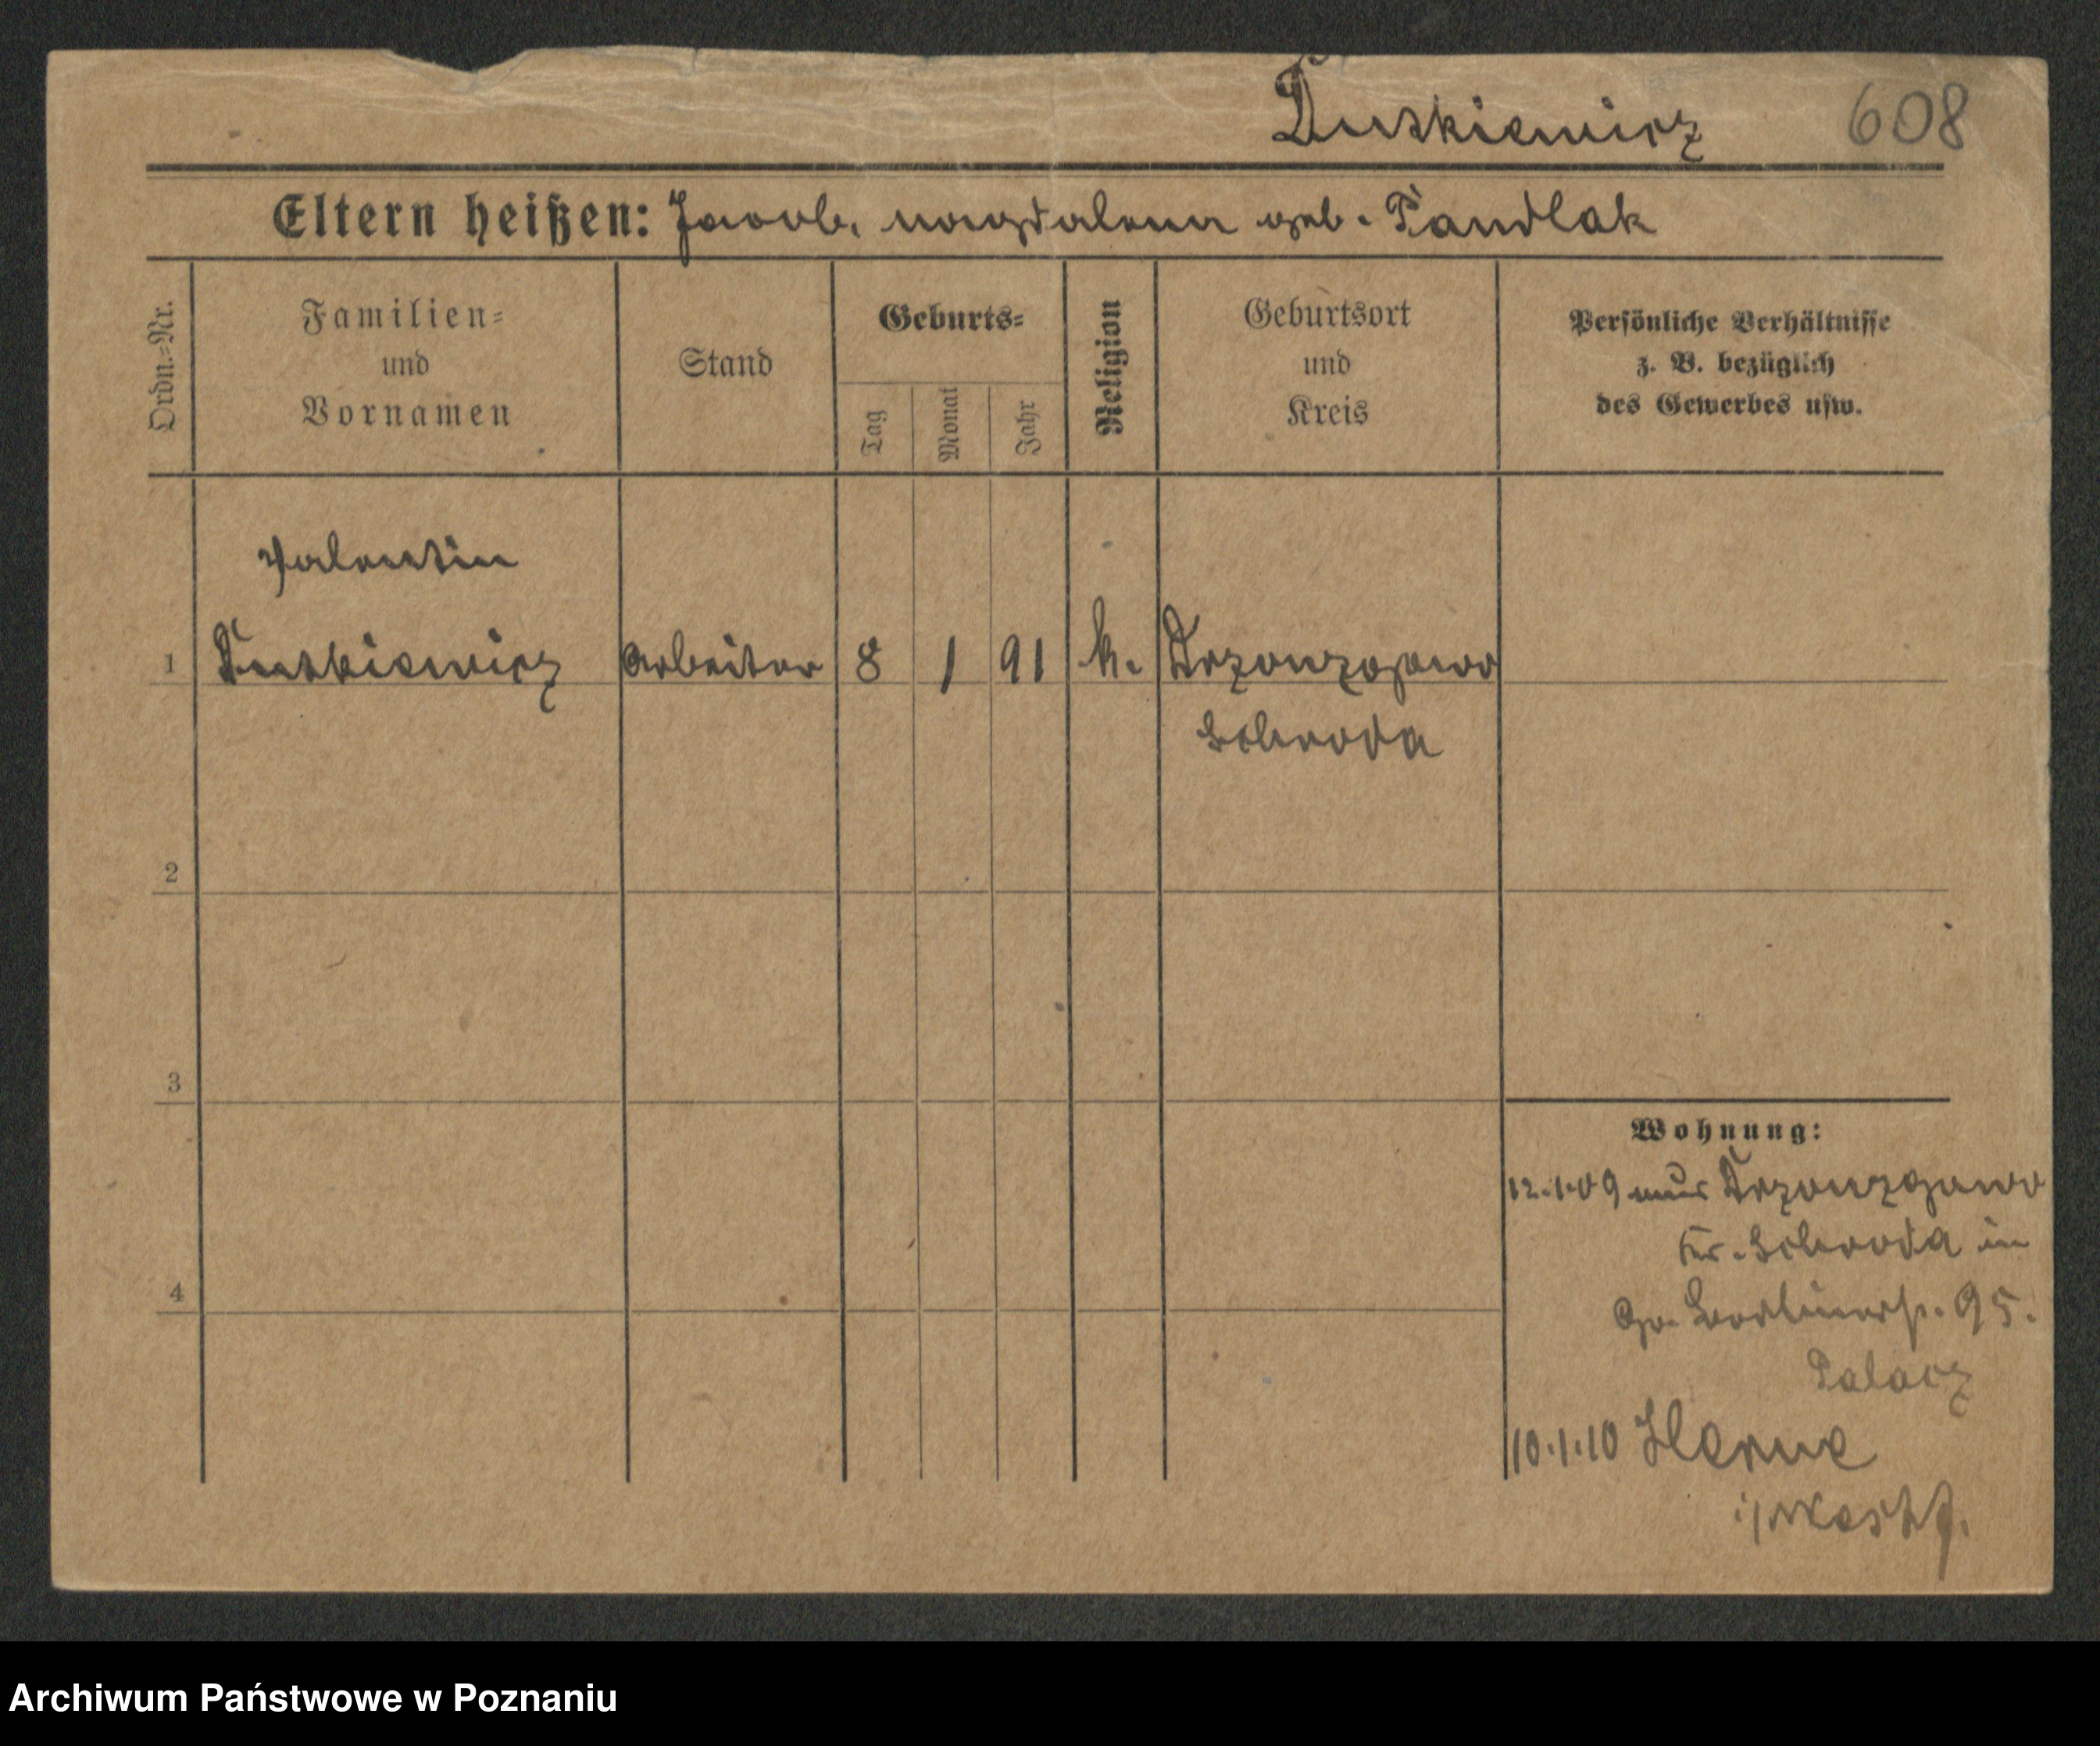 Tuskiewicz 608
Eltern heißen: Jacob, Magdalena geb. Pandlak
Ordn.-Nr.
Familien- und Vornamen
Stand
Geburts-
Tag Monat Jahr
Religion
Geburtsort und Kreis
Persönliche Verhältnisse
z. B. bezüglich
des Gewerbes usw.
Valentin
1 Tuskiewicz Arbeiter 8 1 91 k.
Schroda
2
3
4
Wohnung:
12.1.09 aus
Kr. Schroda in
95.
Palacz
10.1.10
Archiwum Państwowe w Poznaniu